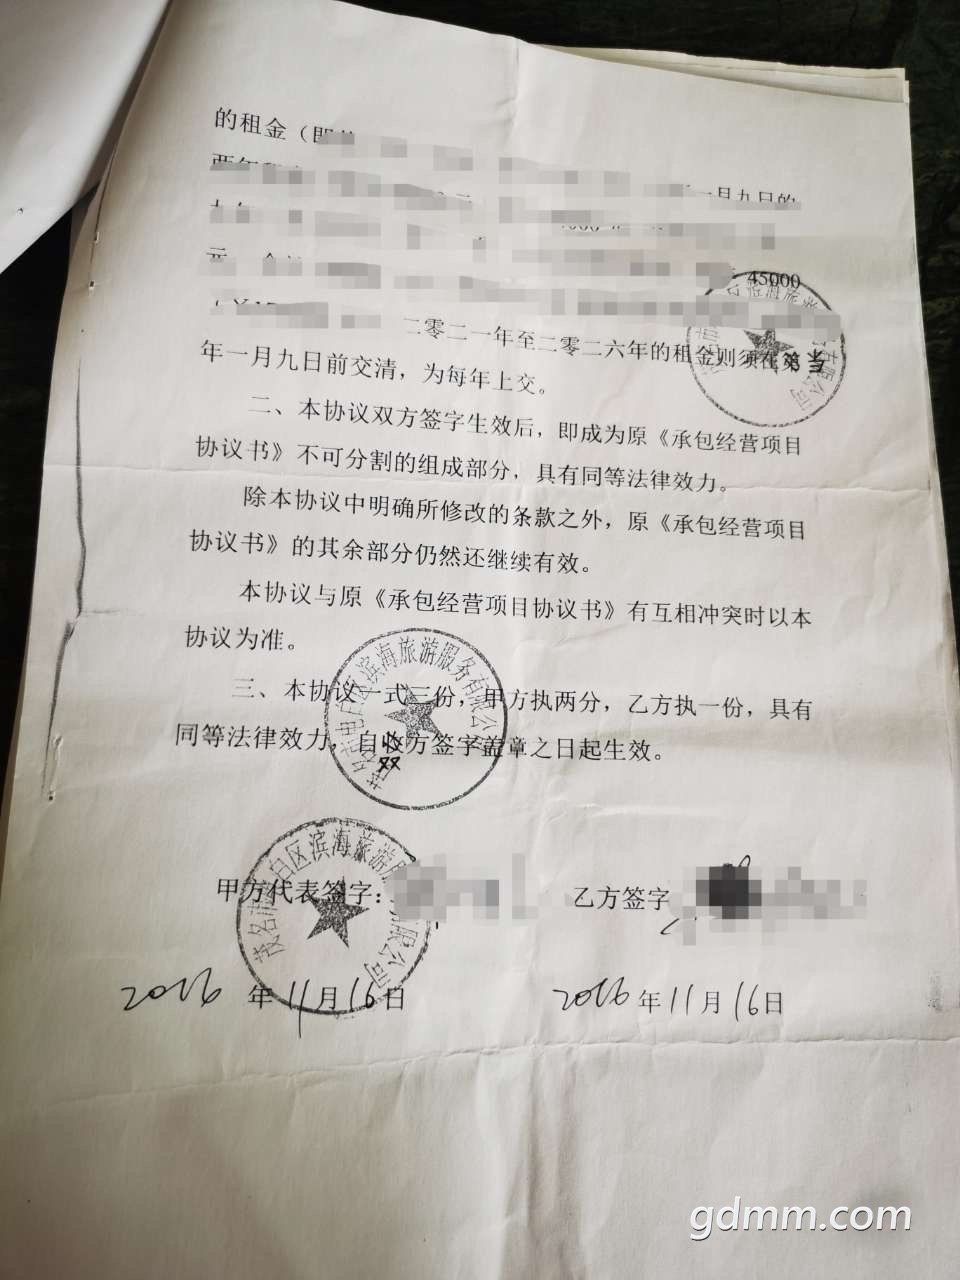 的租金（即
一月九日的
元
45000
二零二一年至二零二六年的租金则须在当
年一月九日前交清，为每年上交。
二、本协议双方签字生效后，即成为原《承包经营项目
协议书》不可分割的组成部分，具有同等法律效力。
除本协议中明确所修改的条款之外，原《承包经营项目
协议书》的其余部分仍然还继续有效。
本协议与原《承包经营项目协议书》有互相冲突时以本
协议为准。
三、本协议一式三份，甲方执两分，乙方执一份，具有
同等法律效力，自双方签字盖章之日起生效。
茂名市电白区滨海旅游服务有限公司
甲方代表签字：
乙方签字
茂名市电白区滨海旅游服务有限公司
2016年11月16日
2016年11月16日
gdmm.com